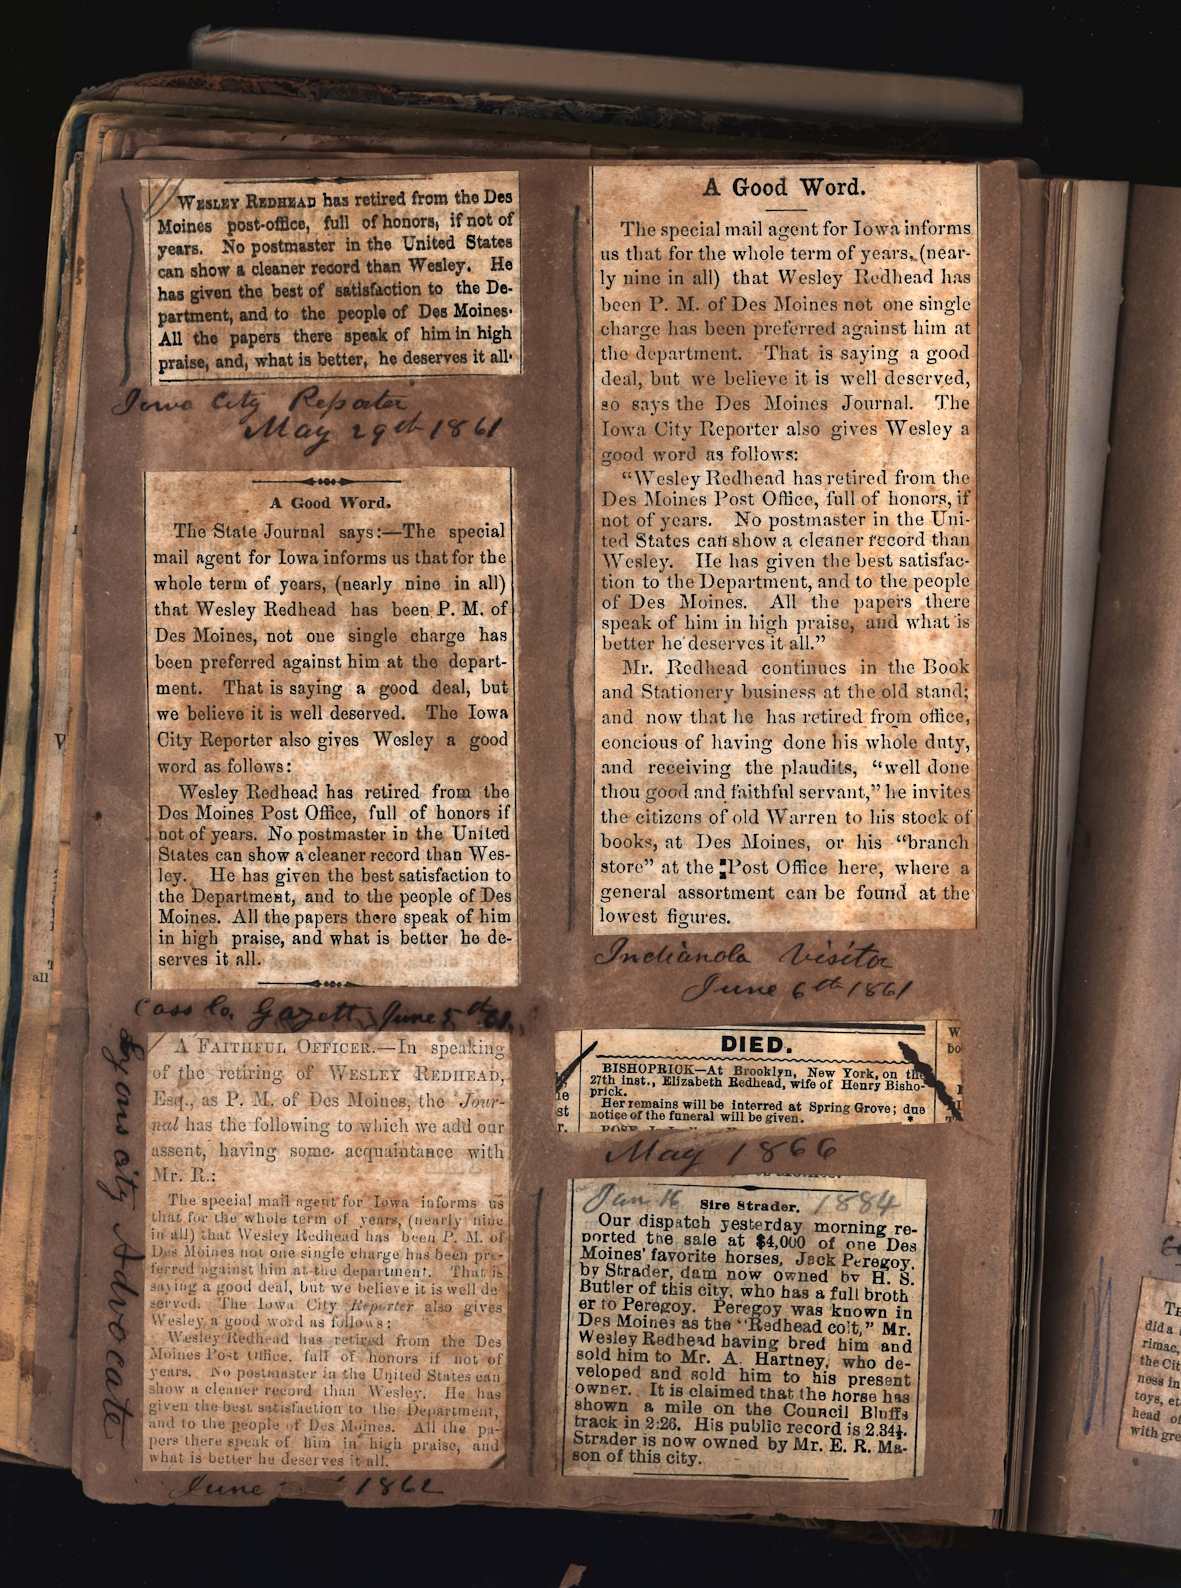 WESLEY REDHEAD has retired from the Des
Moines post-office, full of honors, if not of
years. No postmaster in the United States
can show a cleaner record than Wesley. He
has given the best of satisfaction to the De-
partment, and to the people of Des Moines.
All the papers there speak of him in high
praise, and, what is better, he deserves it all.
Iowa City Reporter
May 29th 1861
A Good Word.
The State Journal says:—The special
mail agent for Iowa informs us that for the
whole term of years, (nearly nine in all)
that Wesley Redhead has been P. M. of
Des Moines, not one single charge has
been preferred against him at the depart-
ment. That is saying a good deal, but
we believe it is well deserved. The Iowa
City Reporter also gives Wesley a good
word as follows:
Wesley Redhead has retired from the
Des Moines Post Office, full of honors if
not of years. No postmaster in the United
States can show a cleaner record than Wes-
ley. He has given the best satisfaction to
the Department, and to the people of Des
Moines. All the papers there speak of him
in high praise, and what is better he de-
serves it all.
Cass Co. Gazett, June 5th 61.
A FAITHFUL OFFICER.—In speaking
of the retiring of WESLEY REDHEAD,
Esq., as P. M. of Des Moines, the Jour-
nal has the following to which we add our
assent, having some acquaintance with
Mr. R.:
The special mail agent for Iowa informs us
that for the whole term of years, (nearly nine
in all) that Wesley Redhead has been P. M. of
Des Moines not one single charge has been pre-
ferred against him at the department. That is
saying a good deal, but we believe it is well de-
served. The Iowa City Reporter also gives
Wesley a good word as follows:
Wesley Redhead has retired from the Des
Moines Post Office, full of honors if not of
years. No postmaster in the United States can
show a cleaner record than Wesley. He has
given the best satisfaction to the Department,
and to the people of Des Moines. All the pa-
pers there speak of him in high praise, and
what is better he deserves it all.
Lyons City Advocate
June 1862
A Good Word.
The special mail agent for Iowa informs
us that for the whole term of years, (near-
ly nine in all) that Wesley Redhead has
been P. M. of Des Moines not one single
charge has been preferred against him at
the department. That is saying a good
deal, but we believe it is well deserved,
so says the Des Moines Journal. The
Iowa City Reporter also gives Wesley a
good word as follows:
"Wesley Redhead has retired from the
Des Moines Post Office, full of honors, if
not of years. No postmaster in the Uni-
ted States can show a cleaner record than
Wesley. He has given the best satisfac-
tion to the Department, and to the people
of Des Moines. All the papers there
speak of him in high praise, and what is
better he deserves it all."
Mr. Redhead continues in the Book
and Stationery business at the old stand;
and now that he has retired from office,
concious of having done his whole duty,
and receiving the plaudits, "well done
thou good and faithful servant," he invites
the citizens of old Warren to his stock of
books, at Des Moines, or his "branch
store" at the Post Office here, where a
general assortment can be found at the
lowest figures.
Indianola Visitor
June 6th 1861
DIED.
BISHOPRICK—At Brooklyn, New York, on the
27th inst., Elizabeth Redhead, wife of Henry Bisho-
prick.
Her remains will be interred at Spring Grove; due
notice of the funeral will be given.
May 1866
Jan 16 1884
Sire Strader.
Our dispatch yesterday morning re-
ported the sale at $4,000 of one Des
Moines' favorite horses, Jack Peregoy.
by Strader, dam now owned by H. S.
Butler of this city, who has a full broth
er to Peregoy. Peregoy was known in
Des Moines as the "Redhead colt," Mr.
Wesley Redhead having bred him and
sold him to Mr. A. Hartney, who de-
veloped and sold him to his present
owner. It is claimed that the horse has
shown a mile on the Council Bluffs
track in 2:26. His public record is 2.34½.
Strader is now owned by Mr. E. R. Ma-
son of this city.
did a
rimac,
the Cit
ness in
toys, et
head of
with gre